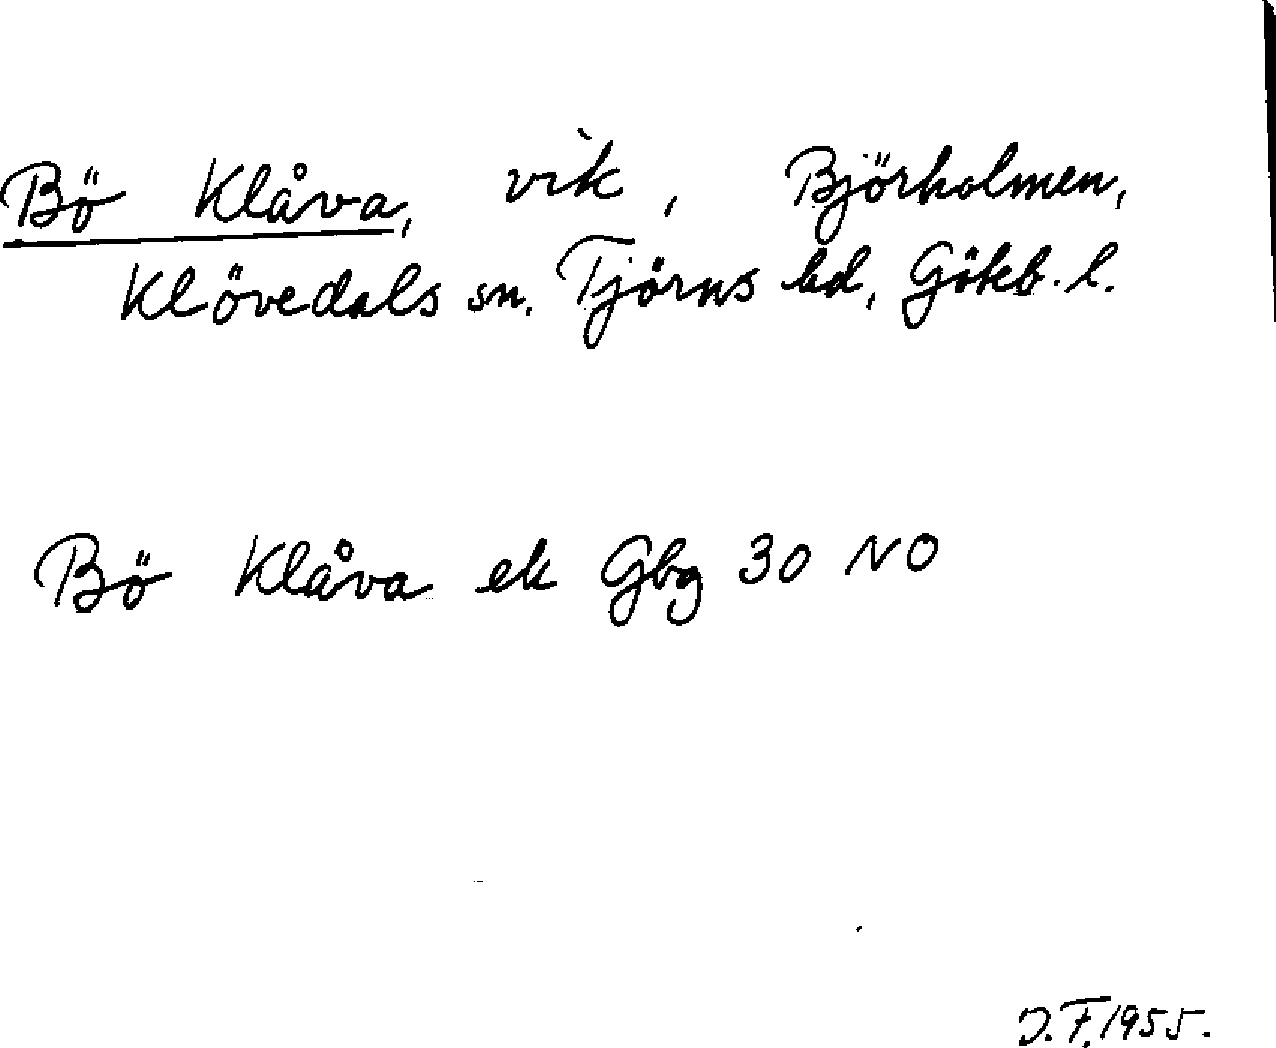 Bö Klåva, vik, Björholmen,
Klövedals sn. Tjörns hd, Göteb. l.
Bö Klåva ek Gbg 30 NO
J.F. 1955.